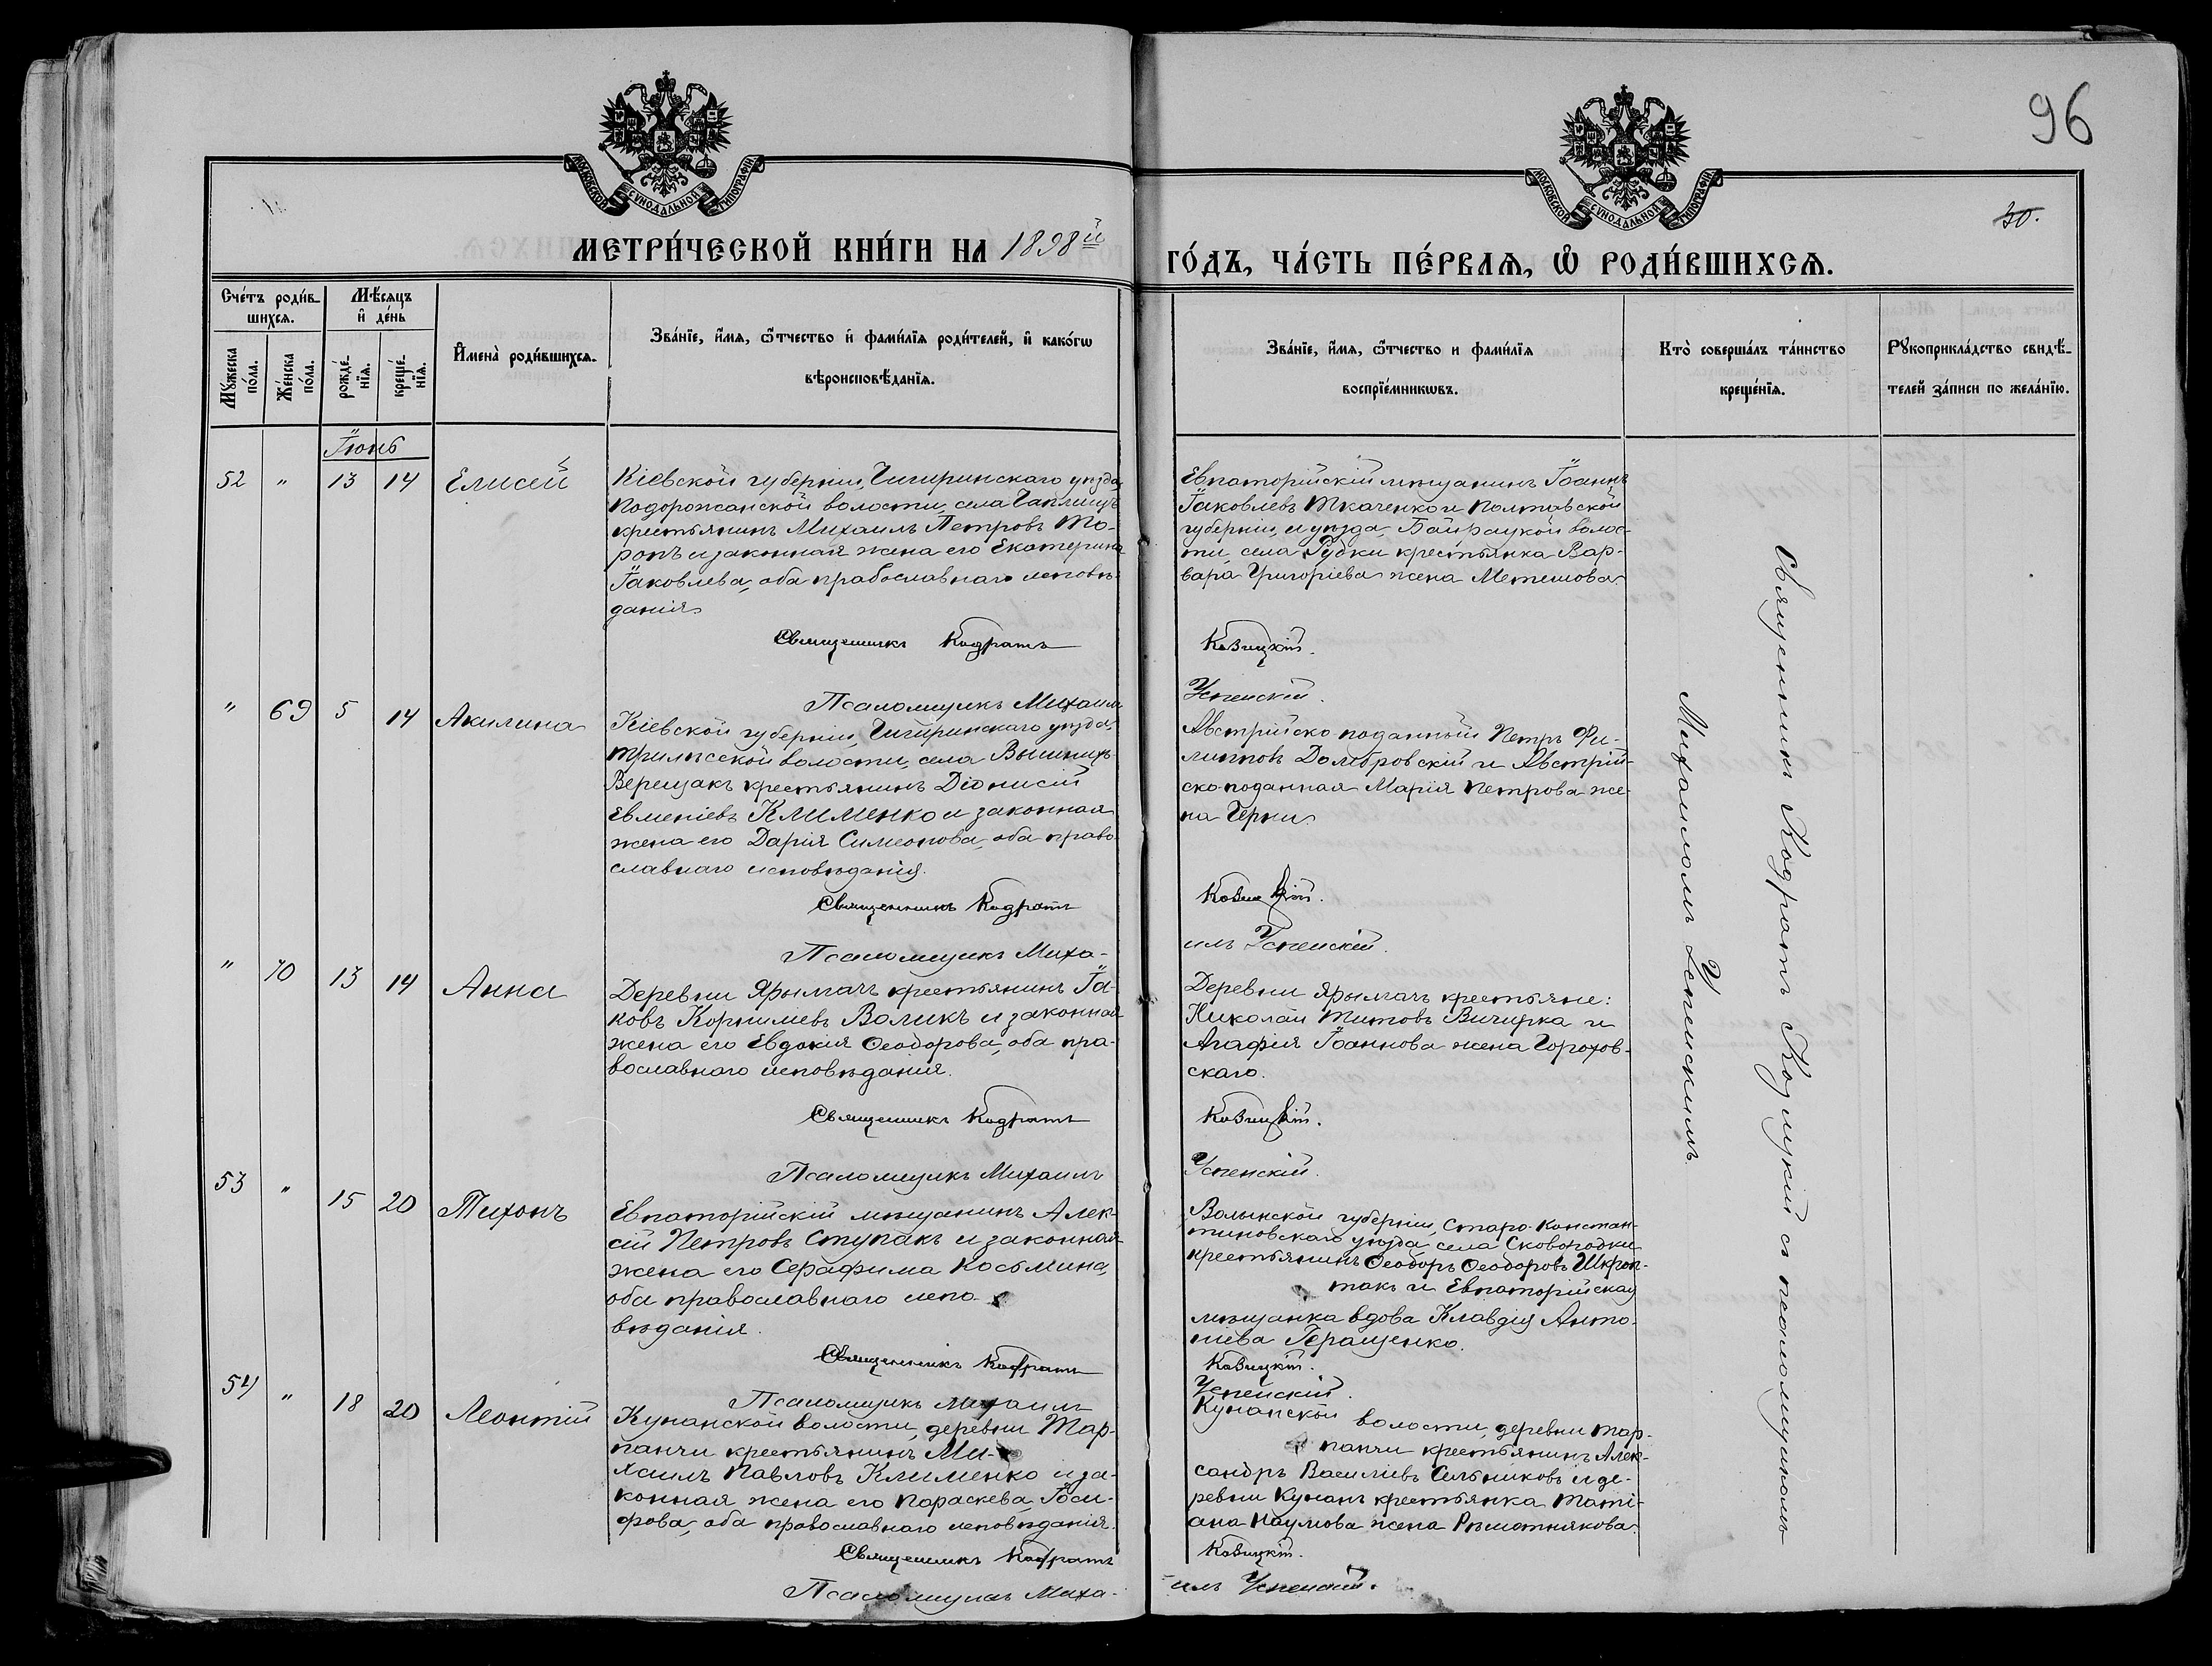 96
30.
МОСКОВСКОЙ СѴНОДАЛЬНОЙ ТИПОГРАФІИ
МОСКОВСКОЙ СѴНОДАЛЬНОЙ ТИПОГРАФІИ
МЕТРИ́ЧЕСКОЙ КНИ́ГИ НА 1898й
ГО́ДЪ, ЧА́СТЬ ПЕ́РВАѦ, Ѡ҆ РОДИ́ВШИХСѦ.
Сче́тъ роди́в-
шихсѧ.
Мꙋ́жеска
по́ла.
Же́нска
по́ла.
Мѣ́сѧцъ
и҆ де́нь
рожде́-
нїѧ.
креще́-
нїѧ.
И҆мена̀ роди́вшихсѧ.
Зва́нїе, и҆́мѧ, ѻ҆́тчество и҆ фами́лїѧ роди́телей, и҆ како́гѡ
вѣроисповѣ́данїѧ.
Зва́нїе, и҆́мѧ, ѻ҆́тчество и фами́лїѧ
воспрїе́мникѡвъ.
Кто̀ соверша́лъ та́инство
креще́нїѧ.
Рꙋкоприкла́дство свидѣ́-
телей за́писи по жела́нїю.
Іюнь
52 " 13 14 Елисей
Кіевской губерніи, Чигиринскаго уѣзда
Подорожанской волости, села Чаплищъ
крестьянинъ Михаилъ Петровъ То-
ропъ и законная жена его Екатерина
Іаковлева, оба православнаго исповѣ-
данія
Священникъ Кодратъ
Псаломщикъ Михаилъ
Евпаторійскій мѣщанинъ Іоаннъ
Іаковлевъ Ткаченко и Полтавской
губерніи и уѣзда, Байрацкой волос-
ти села Рудки крестьянка Вар-
вара Григоріева жена Метешова
Козицкій.
Успенскій.
" 69 5 14 Акилина
Кіевской губерніи, Чигиринскаго уѣзда,
Трилѣсской волости, села Вышнихъ
Верещакъ крестьянинъ Діонисій
Евменіевъ Клименко и законная
жена его Дарія Симеонова, оба право-
славнаго исповѣданія.
Священникъ Кодратъ
Псаломщикъ Миха-
Австрійско поданный Петръ Фи-
липповъ Домбровскій и Австрій-
ско-поданная Марія Петрова же-
на Черни.
Козицкій.
илъ Успенскій.
" 70 13 14 Анна
Деревни Ярылгачъ крестьянинъ Іа-
ковъ Корнилiевъ Воликъ и законная
жена его Евдокія Ѳеодорова, оба пра-
вославнаго исповѣданія.
Священникъ Кодратъ
Псаломщикъ Михаилъ
Деревни Ярылгачъ крестьяне:
Николай Титовъ Вичирка и
Агафія Іоаннова жена Горохов-
скаго.
Козицкій.
Успенскій.
53 " 15 20 Тихонъ
Евпаторійскій мѣщанинъ Алек-
сій Петровъ Ступакъ и законная
жена его Серафима Косьмина,
оба православнаго испо-
вѣданія.
Священникъ Кодратъ
Псаломщикъ Михаилъ
Волынской губерніи, Старо-Констан-
тиновскаго уѣзда села Сковородки
крестьянинъ Ѳеодоръ Ѳеодоровъ
такъ и Евпаторійская
мѣщанка вдова Клавдія Анто-
ніева Геращенко.
Козицкій.
Успенскій.
54 " 18 20 Леонтій
Кунанской волости, деревни Тар-
панчи крестьянинъ Ми-
хаилъ Павловъ Клименко и за-
конная жена его Параскева Іоси-
фова, оба православнаго исповѣданія.
Священникъ Кодратъ
Псаломщикъ Миха-
Кунанской волости, деревни Тар-
панчи крестьянинъ Алек-
сандръ Василіевъ Сильниковъ и де-
ревни Кунанъ крестьянка Таті-
ана Наумова жена
Козицкій.
илъ Успенскій.
Священникъ Кодратъ Козицкій съ псаломщикомъ
Михаиломъ Успенскимъ.